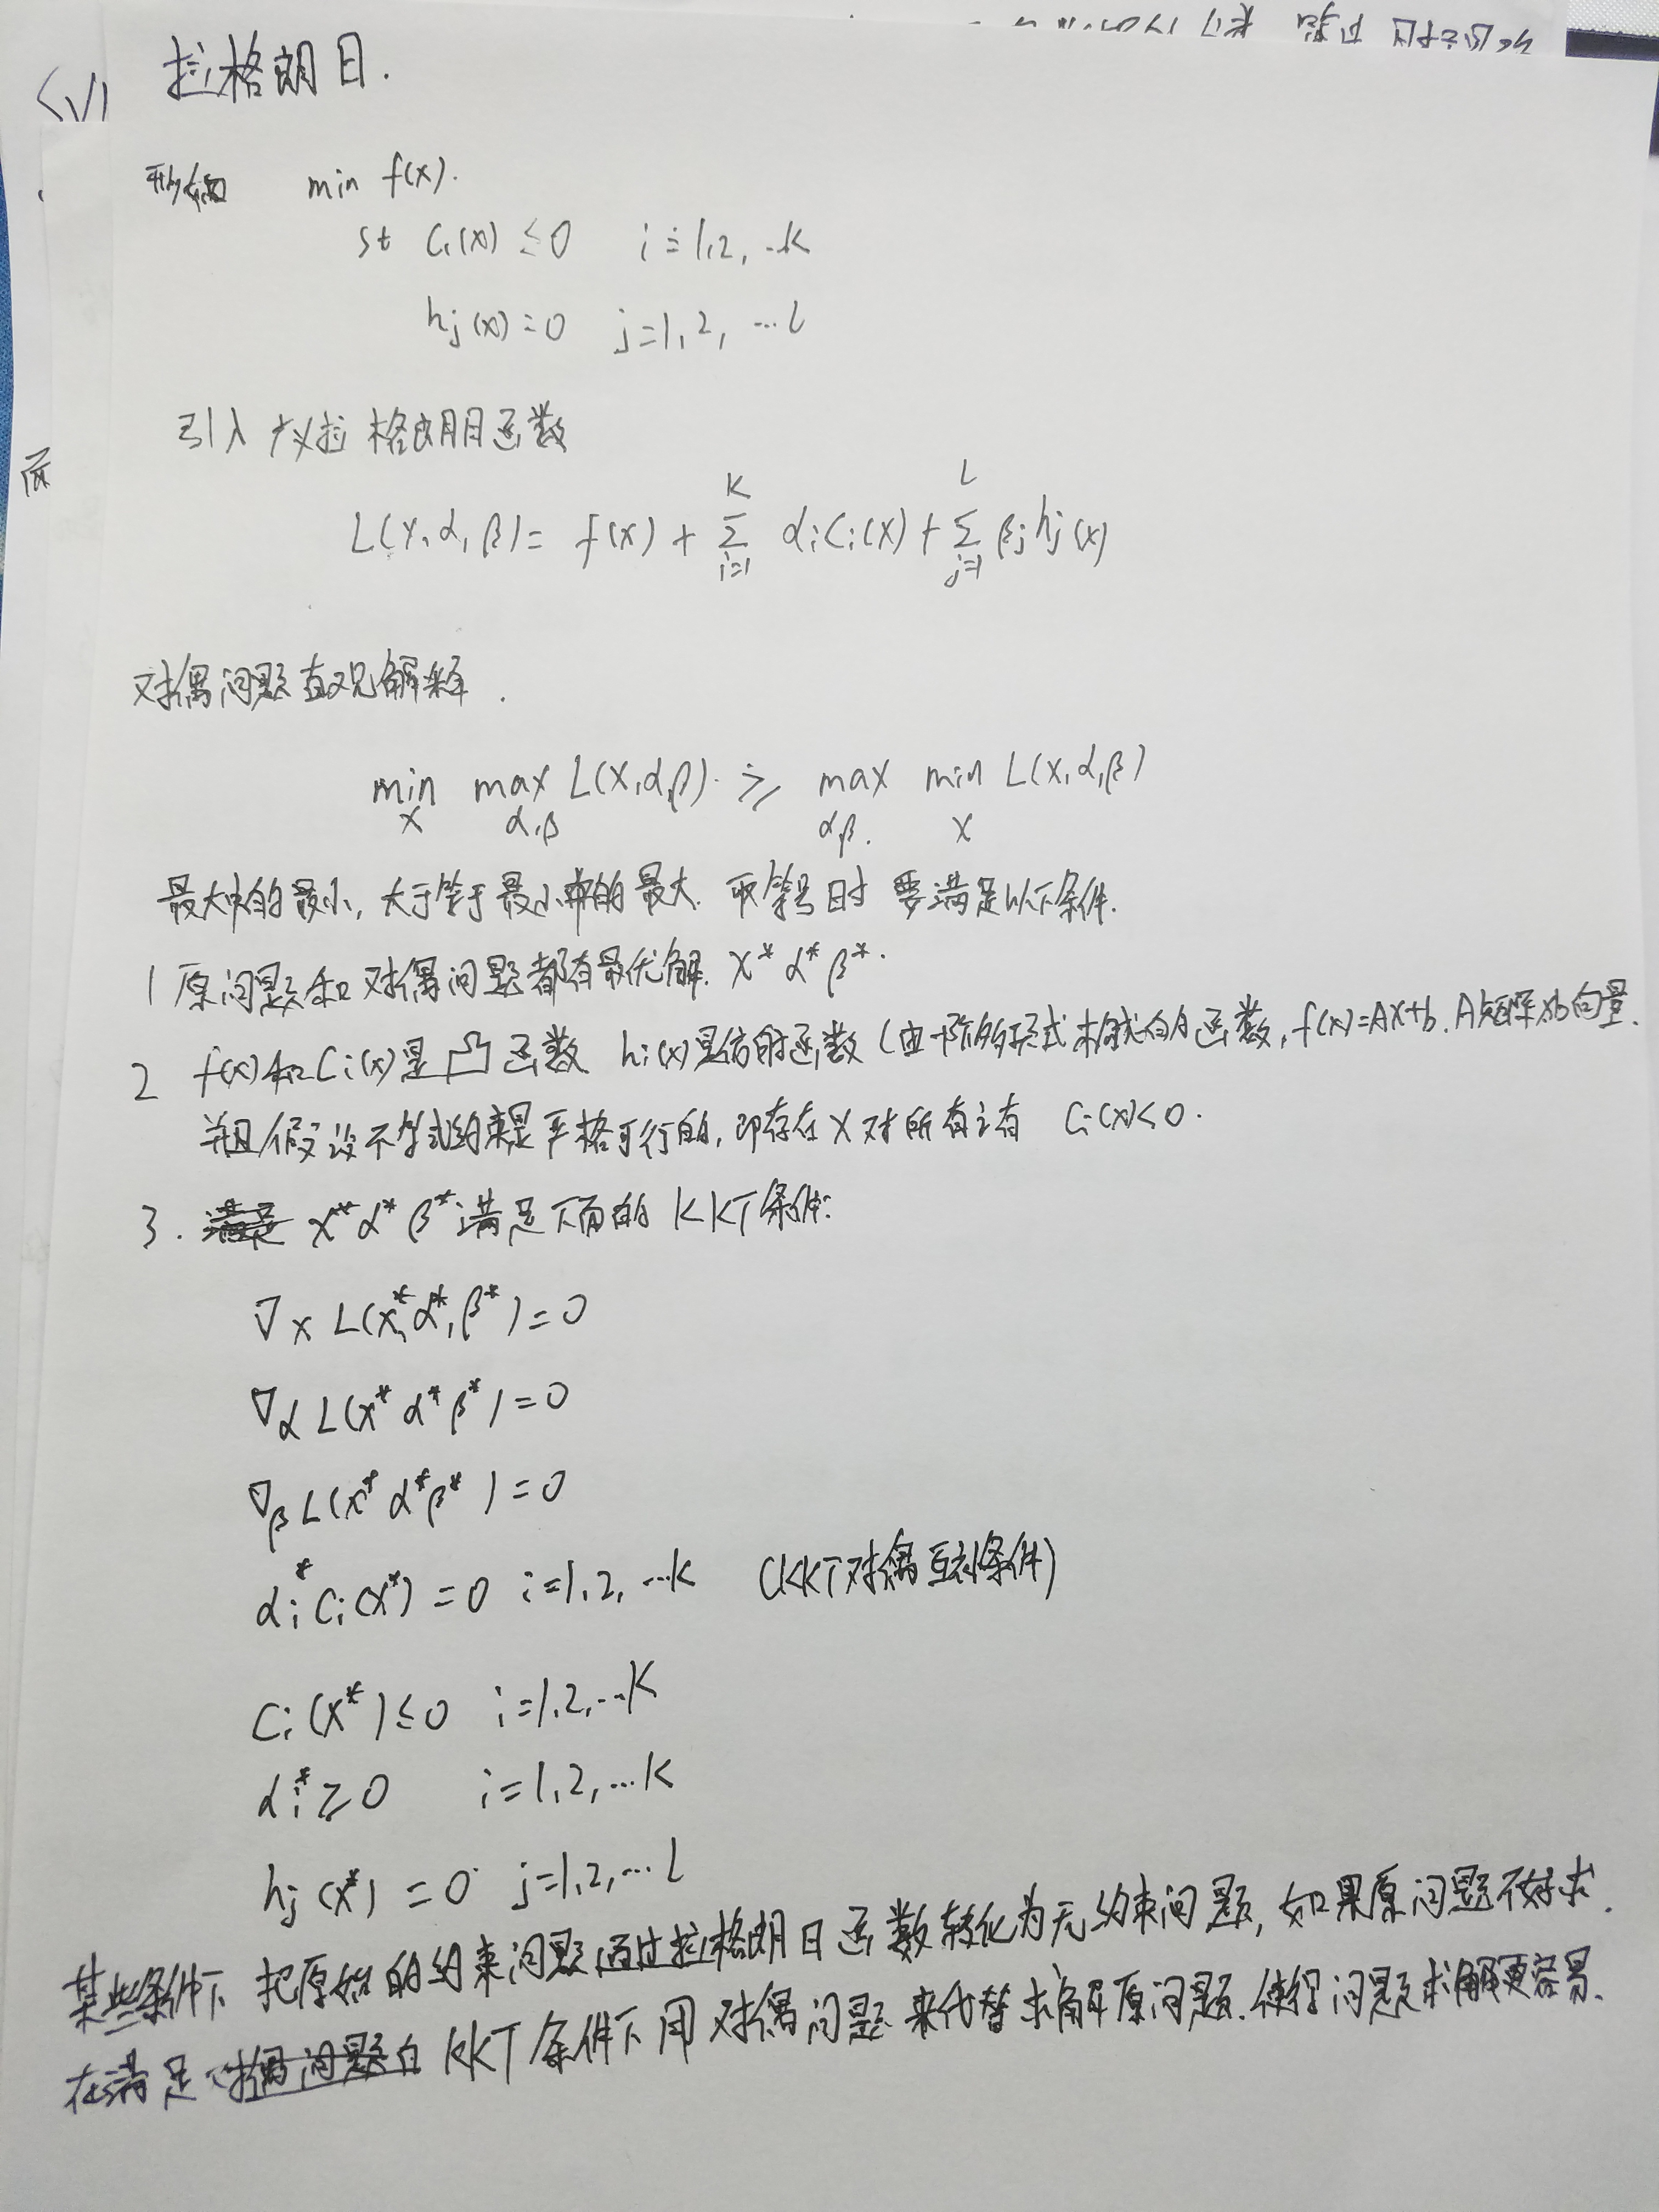 拉格朗日.
形如 min f(x).
st Ci(x) ≤ 0 i=1,2, ...k
hj(x)=0 j=1,2, ...l
引入广义拉格朗日函数
L(x,α,β)= f(x) + Σ_{i=1}^{K} αiCi(x) + Σ_{j=1}^{L} βjhj(x)
对偶问题直观解释.
min_x max_{α,β} L(x,α,β) ≥ max_{α,β} min_x L(x,α,β)
最大中的最小,大于等于最小中的最大. 取等号时 要满足以下条件.
1 原问题和对偶问题都有最优解. x* α* β*.
2 f(x)和Ci(x)是凸函数 hi(x)是仿射函数(由一阶多项式构成的函数, f(x)=Ax+b. A矩阵 b向量.
并且假设不等式约束是严格可行的,即存在X对所有i有 Ci(x)<0.
3. x* α* β*满足下面的KKT条件:
∇x L(x*,α*,β*)=0
∇α L(x* α* β*)=0
∇β L(x* α* β*)=0
αi* Ci(x*)=0 i=1,2, ...k (KKT对偶互补条件)
Ci(x*)≤0 i=1,2,...k
αi*≥0 i=1,2,...k
hj(x*)=0 j=1,2,...l
某些条件下 把原始的约束问题通过拉格朗日函数转化为无约束问题, 如果原问题不好求.
在满足KKT条件下用对偶问题来代替求解原问题.使得问题求解更容易.